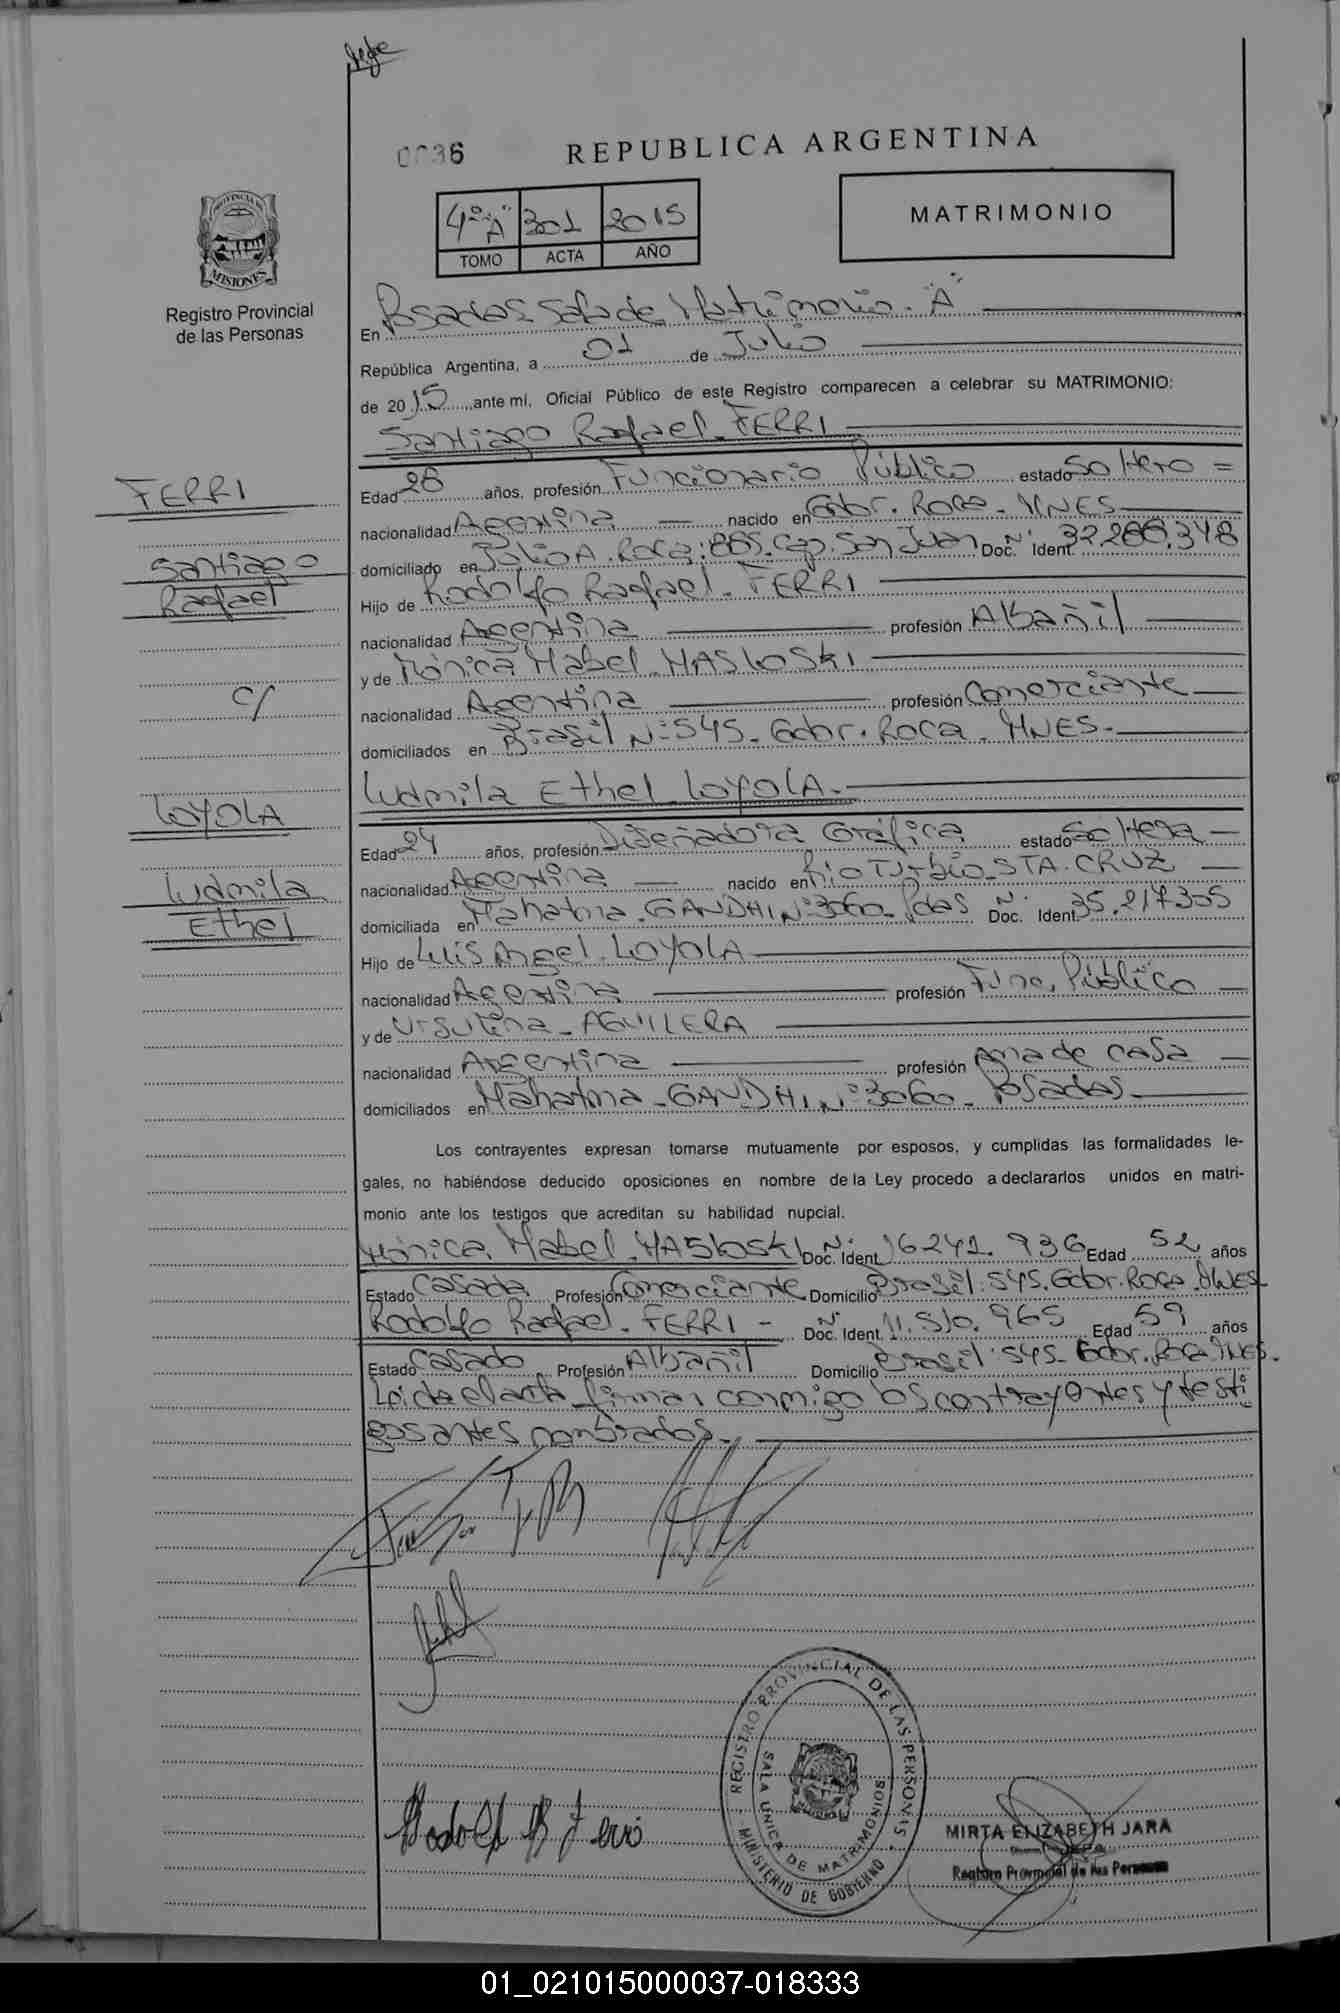 0036
REPUBLICA ARGENTINA
4º "A" 301 2015
TOMO ACTA AÑO
MATRIMONIO
PROVINCIA DE
MISIONES
Registro Provincial
de las Personas
En Posadas Sala de Matrimonio. "A"
República Argentina, a 01 de Julio
de 2015 ante mí, Oficial Público de este Registro comparecen a celebrar su MATRIMONIO:
Santiago Rafael FERRI
FERRI
Santiago
Rafael
c/
LOYOLA
Ludmila
Ethel
Edad 28 años, profesión Funcionario Público estado Soltero =
nacionalidad Argentina nacido en Gobr. Roca. MNES
domiciliado en Julio A. Roca: 885. Cap. San Juan Doc. Nº Ident. 32.266.348
Hijo de Rodolfo Rafael. FERRI
nacionalidad Argentina profesión Albañil
y de Mónica Mabel. MASLOSKI
nacionalidad Argentina profesión Comerciante
domiciliados en Brasil Nº 545. Gobr. Roca. MNES.
Ludmila Ethel LOYOLA.
Edad 24 años, profesión Diseñadora Gráfica estado Soltera
nacionalidad Argentina nacido en Rio Turbio. STA. CRUZ
domiciliada en Mahatma. GANDHI Nº 3060. Pdas Doc. Nº Ident. 35.217.305
Hijo de Luis Angel. LOYOLA
nacionalidad Argentina profesión Func. Público
y de Ursulina. AGUILERA
nacionalidad Argentina profesión Ama de casa
domiciliados en Mahatma. GANDHI, Nº 3060. Posadas.
Los contrayentes expresan tomarse mutuamente por esposos, y cumplidas las formalidades le-
gales, no habiéndose deducido oposiciones en nombre de la Ley procedo a declararlos unidos en matri-
monio ante los testigos que acreditan su habilidad nupcial.
Mónica Mabel. MASLOSKI Doc. Nº Ident. 16.241.936 Edad 52 años
Estado Casada Profesión Comerciante Domicilio Brasil: 545. Gobr. Roca. MNES
Rodolfo Rafael. FERRI - Doc. Nº Ident. 11.510.965 Edad 59 años
Estado Casado Profesión Albañil Domicilio Brasil: 545. Gobr. Roca MNES.
Leída el acta firman conmigo los contrayentes y testi
gos antes nombrados.
Rodolf R Ferri
REGISTRO PROVINCIAL DE LAS PERSONAS
SALA ÚNICA DE MATRIMONIOS
MINISTERIO DE GOBIERNO
MIRTA ELIZABETH JARA
Registro Provincial de las Personas
01_021015000037-018333